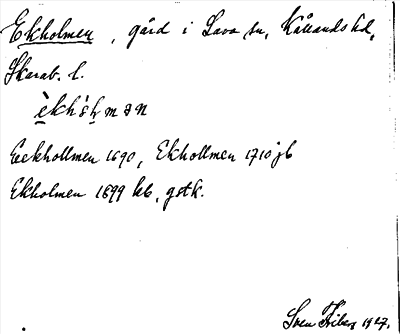 Ekholmen, gård i Sava sn, Kållands hd,
Skarab. l.
èkhòɫmən
Eeckhollmen 1690, Ekhollmen 1710 jb
Ekholmen 1899 kb, gstk.
Sven Friberg 1927.